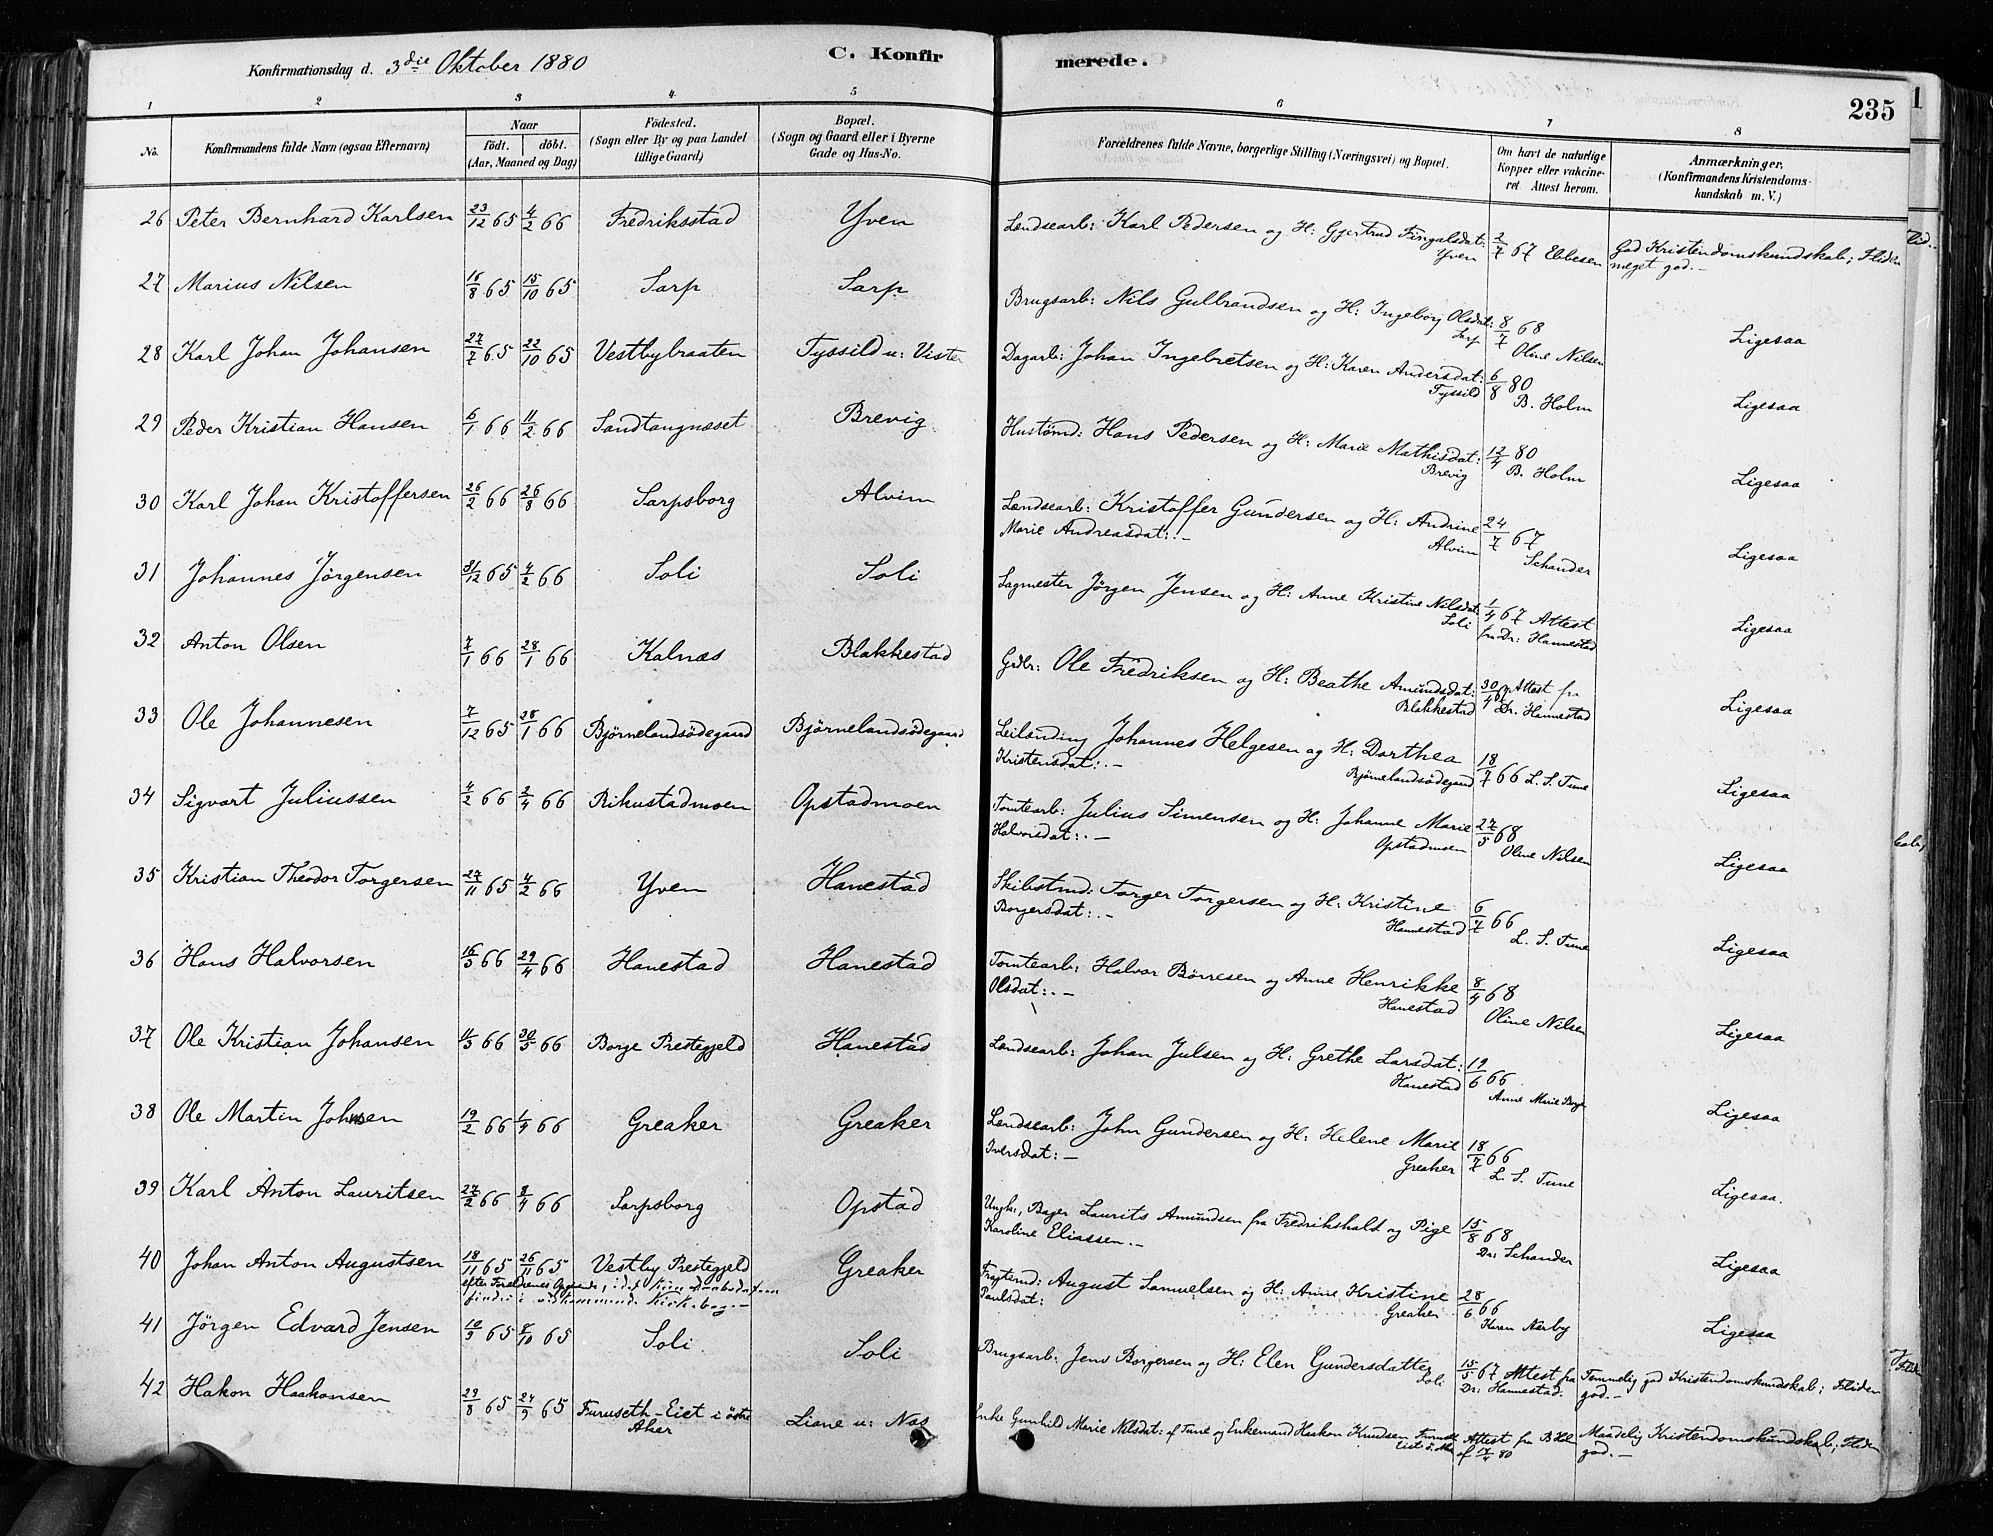 Konfirmationsdag d. 3die Oktober 1880
C. Konfirmerede.
235
1 2 3 4 5 6 7 8
No.
Konfirmandens fulde Navn (ogsaa Efternavn)
Naar
født. døbt.
(Aar, Maaned og Dag)
Fødested.
(Sogn eller By og paa Landet
tillige Gaard)
Bopæl.
(Sogn og Gaard eller i Byerne
Gade og Hus-No.
Forældrenes fulde Navne, borgerlige Stilling (Næringsvei) og Bopæl.
Om havt de naturlige
Kopper eller vakcine-
ret. Attest herom.
Anmærkninger.
(Konfirmandens Kristendoms-
kundskab m. V.)
26 Peter Bernhard Karlsen 23/12 65 4/2 66 Fredriksstad Yven Lendsearb: Karl Pedersen og H: Gjertrud Fingalsdat: Yven 2/7 67 Ebbesen God Kristendomskundskab; Fliden
meget god.-
27 Marius Nilsen 18/8 65 15/10 65 Sarp Sarp Brugsarb: Nils Gulbrandsen og H: Ingeborg Olsdat: Sarp 8/7 68 Oline Nilsen Ligesaa
28 Karl Johan Johansen 27/7 65 22/10 65 Vestbybraaten Tyssild u: Vister Dagarb: Johan Ingebretsen og H: Karen Andersdat: Tyssild 6/8 80 B. Holm Ligesaa
29 Peder Kristian Hansen 6/1 66 11/2 66 Sandtangnæset Brevig Hustømd: Hans Pedersen og H: Marie Mathisdat: Brevig 12/4 80 B. Holm Ligesaa
30 Karl Johan Kristoffersen 26/2 66 26/8 66 Sarpsborg Alvim Lendsearb: Kristoffer Gundersen og H: Andrine
Marie Andreasdat:- Alvim 24/7 67 Schander Ligesaa
31 Johannes Jørgensen 31/12 65 4/2 66 Soli Soli Sagmester Jørgen Jensen og H: Anne Kristine Nilsdat: Soli 1/4 67 Attest
fra Dr: Hannestad Ligesaa
32 Anton Olsen 7/1 66 28/1 66 Kalnæs Blakkestad Grdbr: Ole Fredriksen og H: Beathe Amundsdat: Blakkestad 30/4 Attest fra
Dr. Hannestad Ligesaa
33 Ole Johannesen 7/12 65 28/1 66 Bjørnelandsødegaard Bjørnelandsødegaard Leilænding Johannes Helgesen og H: Dorthea
Kristensdat:- Bjørnelandsødegaard 18/7 66 L. S. Tune Ligesaa
34 Sigvart Juliussen 4/2 66 2/4 66 Rikustadmoen Opstadmoen Tomtearb: Julius Simensen og H: Johanne Marie
Halvorsdat:- Opstadmoen 27/5 68 Oline Nilsen Ligesaa
35 Kristian Theodor Torgersen 27/11 65 4/2 66 Yven Hanestad Skibstmd: Torger Torgersen og H: Kristine
Borgersdat:- Hannestad 6/7 66 L. S. Tune Ligesaa
36 Hans Halvorsen 16/3 66 29/4 66 Hanestad Hanestad Tomtearb: Halvor Børresen og Anne Henrikke
Olsdat:- Hanestad 8/4 68 Oline Nilsen Ligesaa
37 Ole Kristian Johansen 11/3 66 30/5 66 Borge Prestegjeld Hanestad Lendsearb: Johan Julsen og H: Grethe Larsdat: Hanestad 19/6 66 Anne Marie Borge Ligesaa
38 Ole Martin Johnsen 19/2 66 1/4 66 Greaker Greaker Lendsearb: John Gundersen og H: Helene Marie
Iversdat:- Greaker 18/7 66 L. S. Tune Ligesaa.
39 Karl Anton Lauritsen 27/2 66 8/4 66 Sarpsborg Opstad Ungk:, Bager Laurits Amundsen fra Fredrikshald og Pige
Karoline Eliassen.- 15/8 68 Dr: Schander Ligesaa
40 Johan Anton Augustsen 18/11 65 26/11 65 Vestby Prestegjeld Greaker Fragtemd: August Samuelsen og H: Anne Kristine
Paulsdat: Greaker 28/6 66 Karen Nerby Ligesaa
efter Forældrenes Opgivende, idet
findes i vedkommende Kirkebog.-
41 Jørgen Edvard Jensen 10/9 65 8/10 65 Soli Soli Brugsarb: Jens Borgersen og H: Elen Gundersdatter Soli 15/5 67 Attest fra
Dr: Hannestad. Temmelig god Kristendomskundskab; Fliden
god.-
42 Hakon Haakonsen 29/8 65 24/9 65 Furuseth-Eiet i østre
Aker Liane u: Næs Enke Gunhild Marie Nilsdat: af Tune og Enkemand Haakon Knudsen Attest fra B. Holm
af 17/4 80 Maadelig Kristendomskundskab; Fliden
god.-